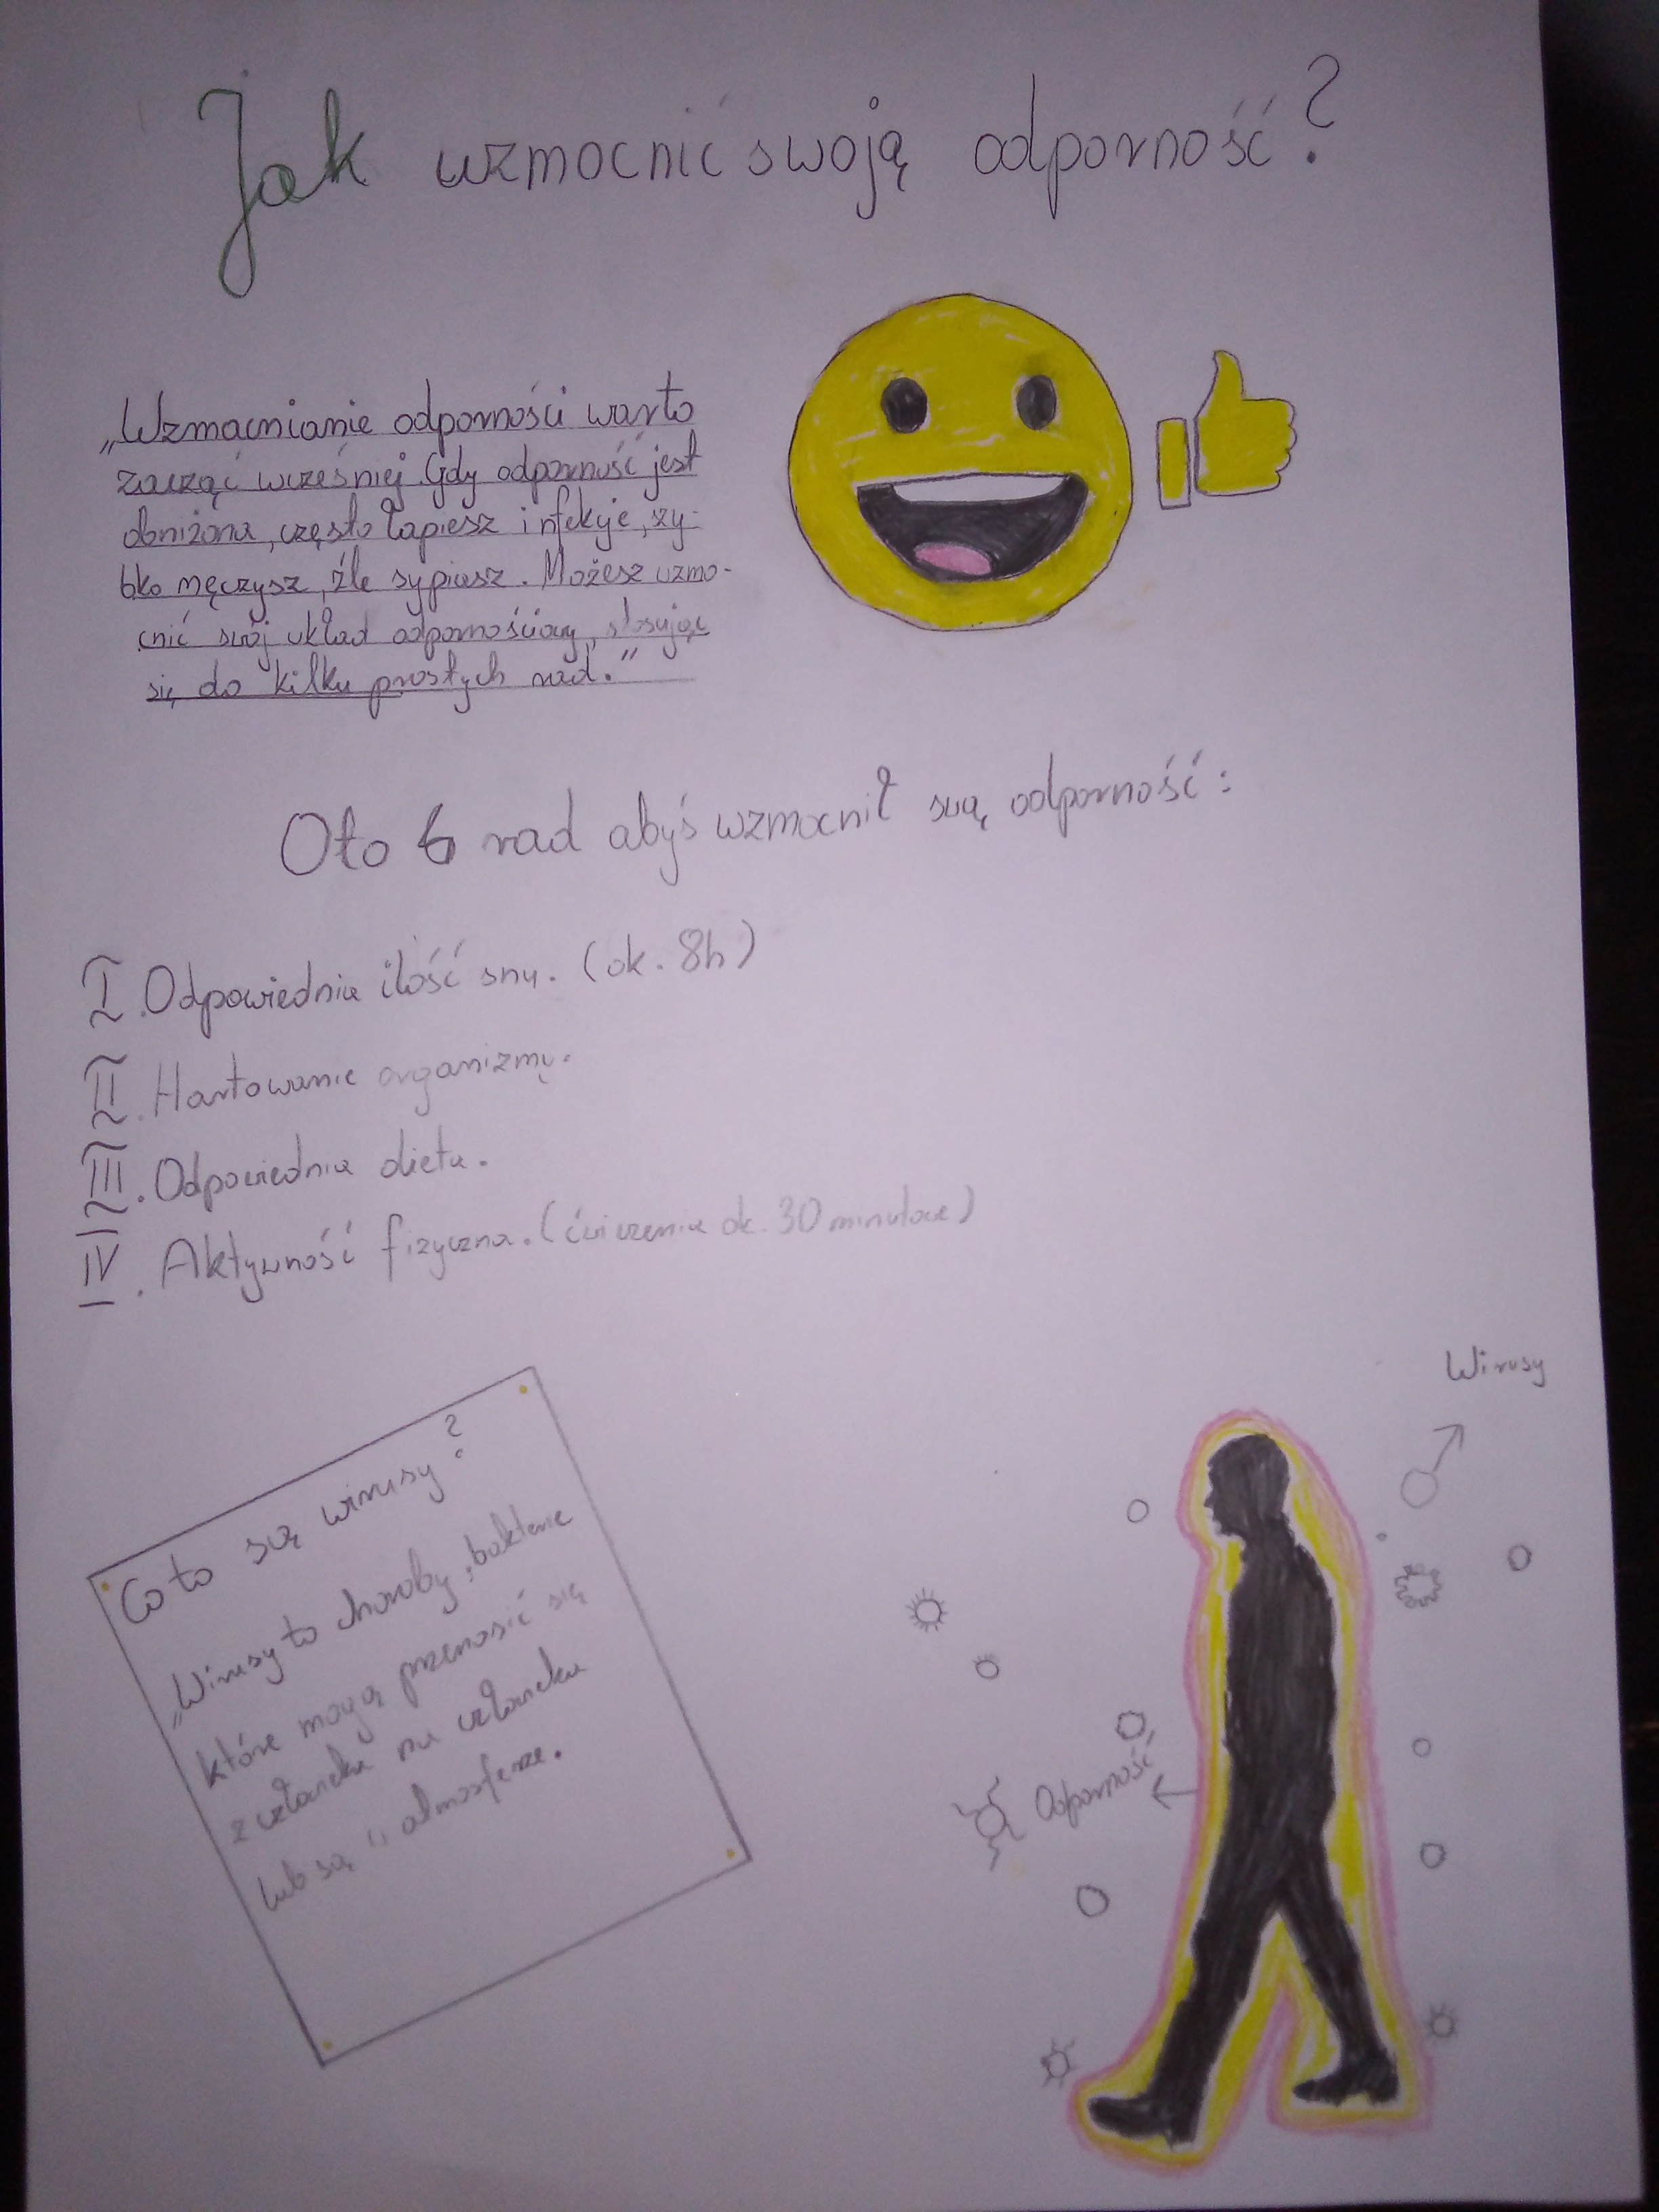 Jak wzmocnić swoją odporność?
„Wzmacnianie odporności warto
zacząć wcześniej. Gdy odporność jest
obniżona, często łapiesz infekcje, szy-
bko męczysz, źle sypiasz. Możesz wzmo-
cnić swój układ odpornościowy, stosując
się do kilku prostych rad."
Oto 6 rad abyś wzmocnił swą odporność:
I. Odpowiednia ilość snu. (ok. 8h)
II. Hartowanie organizmu.
III. Odpowiednia dieta.
IV. Aktywność fizyczna. (ćwiczenia ok. 30 minutowe)
Co to są wirusy?
„Wirusy to choroby, bakterie
które mogą przenosić się
z człowieka na człowieka
lub są w atmosferze.
Wirusy
Odporność